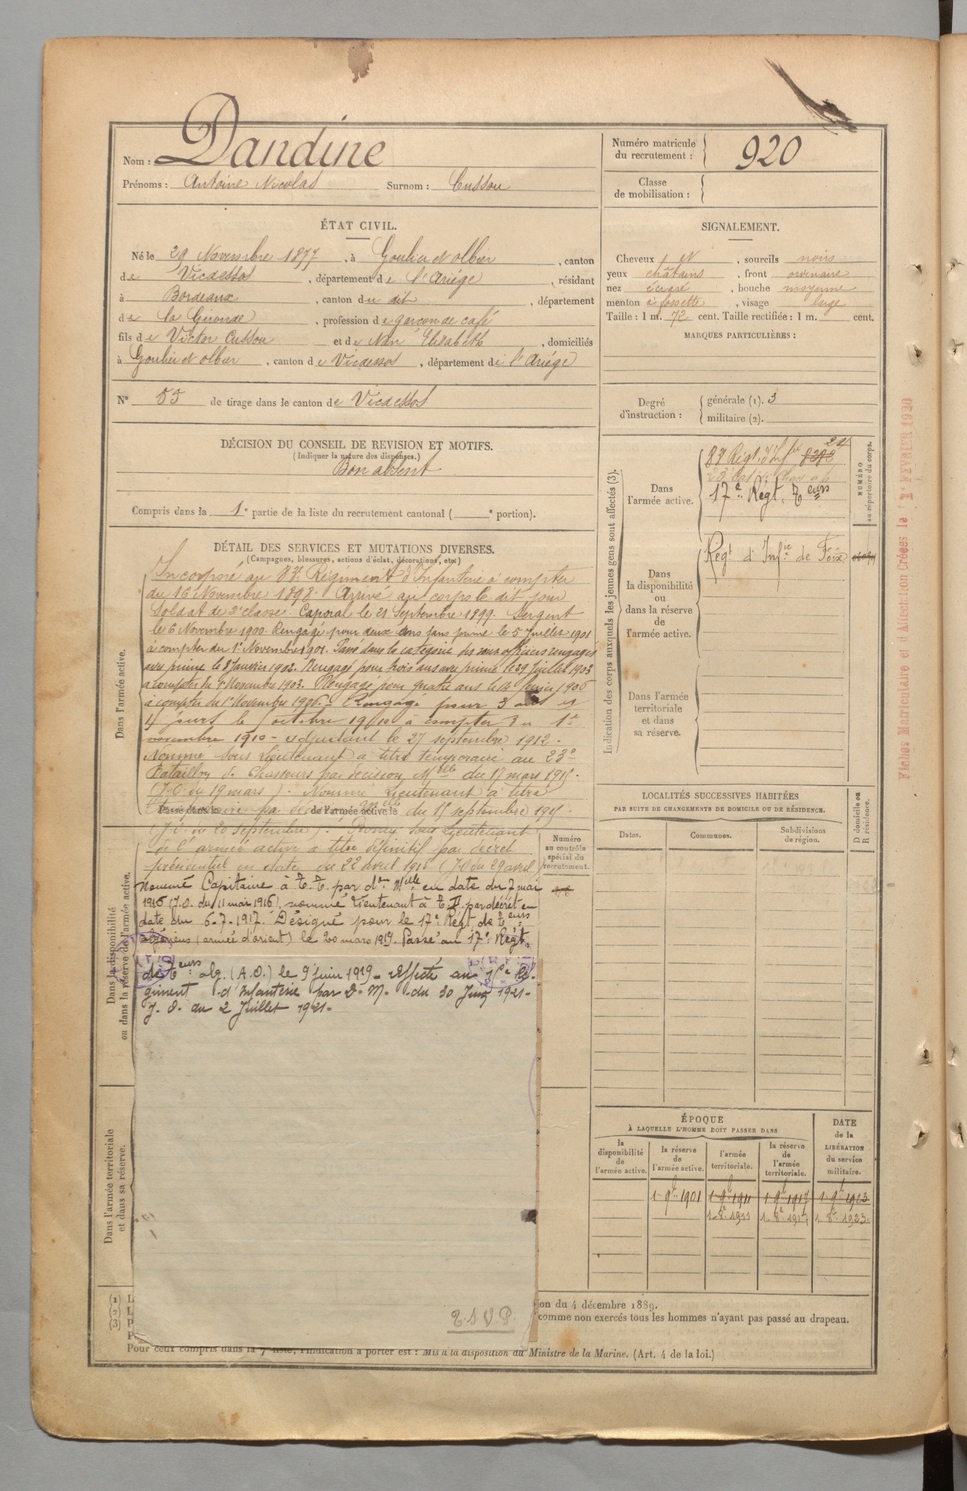 Nom : Dandine
Prénoms : Antoine Nicolas Surnom : Cussou
Numéro matricule du recrutement : 920
Classe de mobilisation :
ÉTAT CIVIL.
Né le 29 Novembre 1877, à Goulier et Olbier, canton
de Vicdessos, département de l'Ariége, résidant
à Bordeaux, canton du dit, département
de la Gironde, profession de garçon de café
fils de Victor Cussou et de Élisabeth, domiciliés
à Goulier et olbier, canton de Vicdessos, département de l'Ariége
N° 55 de tirage dans le canton de Vicdessos
SIGNALEMENT.
Cheveux et N, sourcils noirs
yeux châtains, front ordinaire
nez, bouche moyenne
menton à fossette, visage large
Taille : 1 m. 72 cent. Taille rectifiée : 1 m. cent.
MARQUES PARTICULIÈRES :
Degré d'instruction :
générale (1). 3
militaire (2).
DÉCISION DU CONSEIL DE REVISION ET MOTIFS.
(Indiquer la nature des dispenses.)
Bon absent
Compris dans la 1e partie de la liste du recrutement cantonal ( e portion).
DÉTAIL DES SERVICES ET MUTATIONS DIVERSES.
(Campagnes, blessures, actions d'éclat, décorations, etc.)
Dans l'armée active.
Incorporé au 83e Régiment d'Infanterie à compter
du 16 Novembre 1898. Arrivé au corps le dit jour
Soldat de 2e classe. Caporal le 21 Septembre 1899. Sergent
le 6 Novembre 1900. Rengagé pour deux ans sans prime le 5 Juillet 1901
à compter du 1er Novembre 1901. Passé dans la catégorie des sous officiers rengagés
avec prime le 8 Janvier 1902. Rengagé pour trois ans avec prime le 29 Juillet 1903
à compter du 1er Novembre 1903. Rengagé pour quatre ans le 1906
à compter du 1er Novembre 1906. Rengagé pour 3 ans
15 jours le octobre 1910 à compter du 1er
novembre 1910 - adjudant le 27 septembre 1912.
Nommé Sous Lieutenant à titre temporaire au 23e
Bataillon de Chasseurs par décision Mlle du 17 mars 1915.
(JO du 19 mars). Nommé Lieutenant à titre
temporaire par Mlle du 15 septembre 1915.
(J.O. du 20 septembre). Promu Sous Lieutenant
de l'armée active à titre définitif par décret
présidentiel en date du 22 avril 1916 (JO du 29 avril)
Nommé Capitaine à T.T. par don Mlle en date du 7 mai
1916 (J.O. du 11 mai 1916), nommé Lieutenant à T.D. par décret en
date du 6.7.1917. Désigné pour le 17e Régt de Teurs
algériens (armée d'orient) le 20 mars 1919. Passé au 17e Régt
de Teurs alg. (A.O.) le 9 juin 1919 - Affecté au Ré-
giment d'Infanterie par D.M. du 30 Juin 1921 -
J.O. du 2 Juillet 1921 -
T.S.V.P
Dans la disponibilité ou dans la réserve de l'armée active.
Dans l'armée territoriale et dans sa réserve.
Numéro au contrôle spécial du recrutement.
Indication des corps auxquels les jeunes gens sont affectés (3).
Dans l'armée active.
83e Régt d'Infie
17e Régt Teurs
NUMÉRO au répertoire du corps.
Dans la disponibilité ou dans la réserve de l'armée active.
Régt d'Infie de Foix
Dans l'armée territoriale et dans sa réserve.
LOCALITÉS SUCCESSIVES HABITÉES
PAR SUITE DE CHANGEMENTS DE DOMICILE OU DE RÉSIDENCE.
Dates. Communes. Subdivisions de région.
D domicile ou R résidence.
ÉPOQUE
À LAQUELLE L'HOMME DOIT PASSER DANS
la disponibilité de l'armée active.
la réserve de l'armée active.
l'armée territoriale.
la réserve de l'armée territoriale.
DATE de la LIBÉRATION du service militaire.
1 9bre 1901 1 9bre 1911 1 9bre 1917 1 9bre 1923
1 8bre 1911 1 8bre 1917 1 8bre 1923
(1)
(2)
(3)
ion du 4 décembre 1889.
comme non exercés tous les hommes n'ayant pas passé au drapeau.
Pour ceux compris dans la 7e liste, l'indication à porter est : Mis à la disposition du Ministre de la Marine. (Art. 4 de la loi.)
Fiches Matriculaire et d'Affectation Créées le 1 FEVRIER 1920